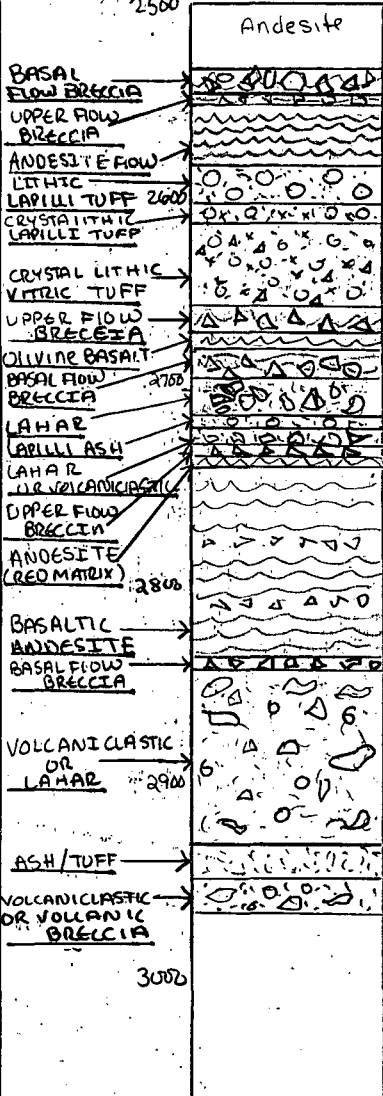 2500
Andesite
BASAL
FLOW BRECCIA
UPPER FLOW
BRECCIA
ANDESITE FLOW
LITHIC
LAPILLI TUFF 2600
CRYSTAL LITHIC
LAPILLI TUFF
CRYSTAL LITHIC
VITRIC TUFF
UPPER FLOW
BRECCIA
OLIVINE BASALT
BASAL FLOW 2700
BRECCIA
LAHAR
LAPILLI ASH
LAHAR
OR VOLCANICLASTIC
UPPER FLOW
BRECCIA
ANDESITE
(RED MATRIX)
2800
BASALTIC
ANDESITE
BASAL FLOW
BRECCIA
VOLCANICLASTIC
OR
LAHAR 2900
ASH/TUFF
VOLCANICLASTIC
OR VOLCANIC
BRECCIA
3000